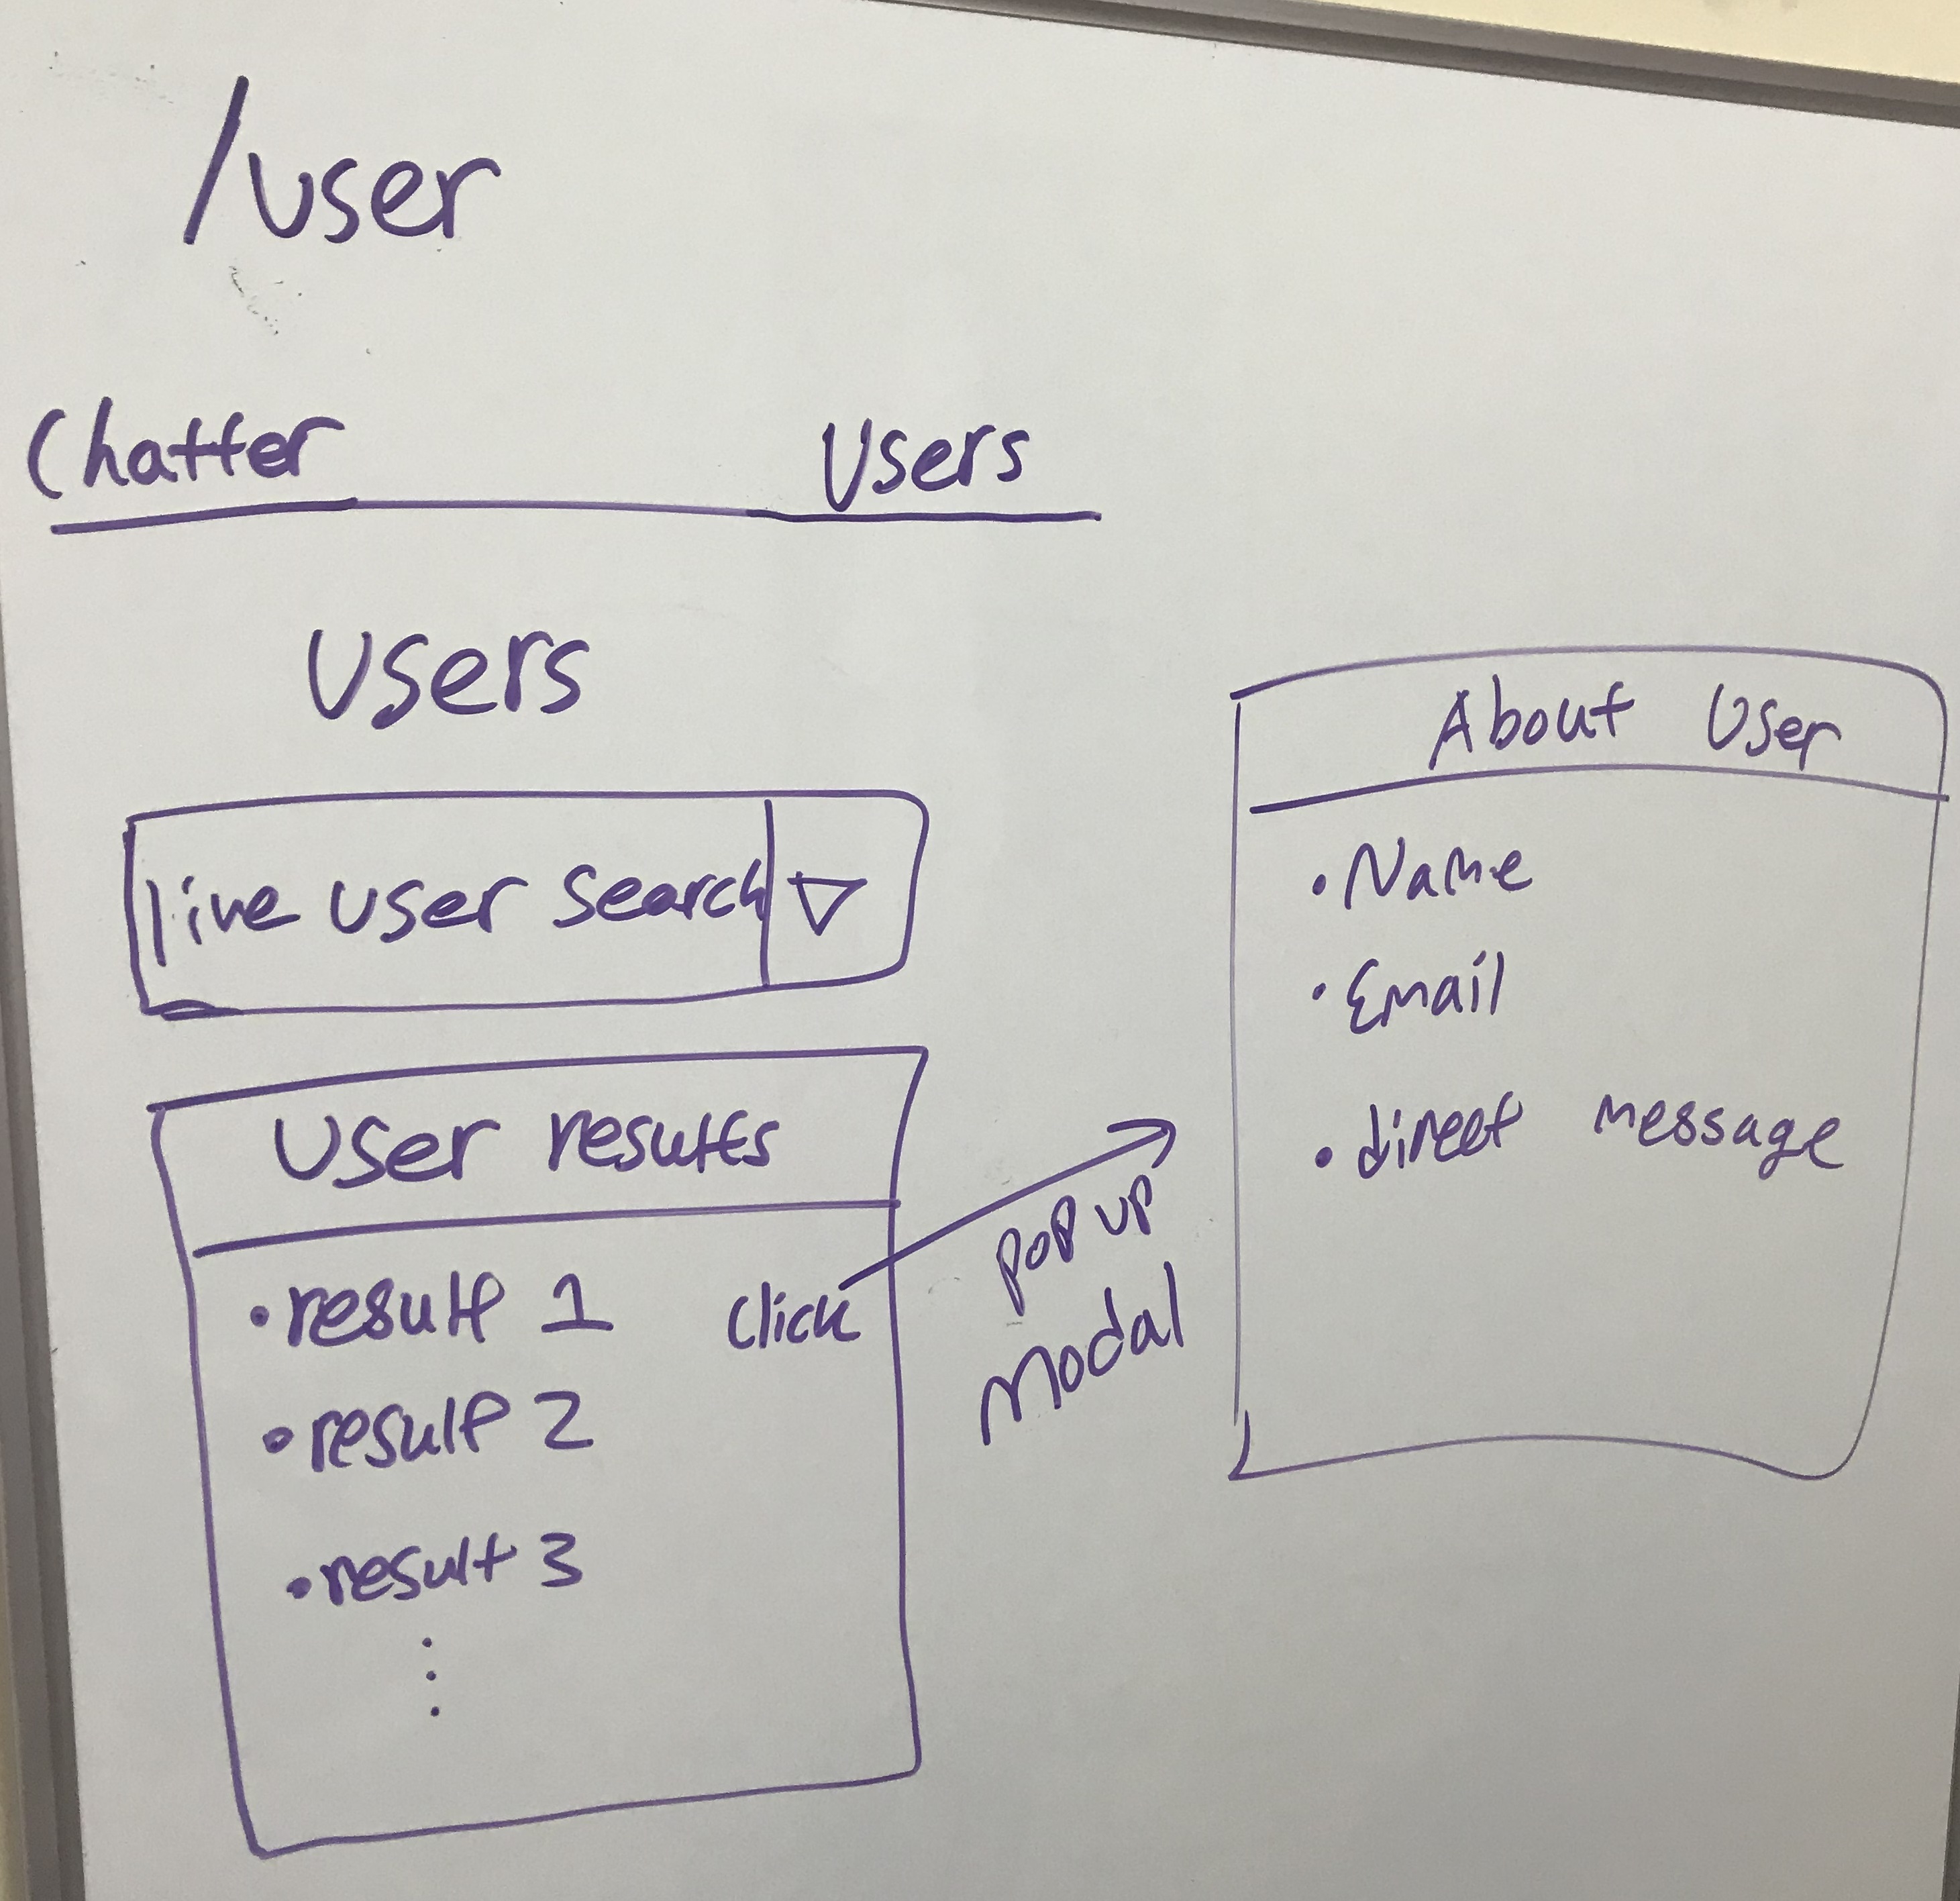 /user
Chatter Users
Users
live user search
User results
• result 1 click
• result 2
• result 3
pop up
modal
About User
• Name
• Email
• direct message